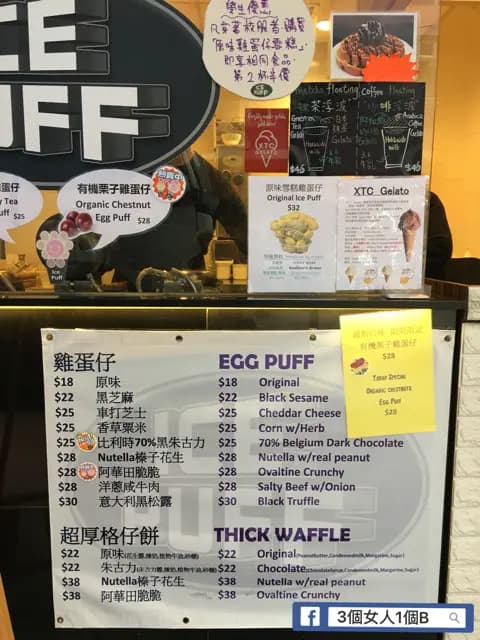 學生優惠
凡穿著校服者 購買
「原味雞蛋仔雪糕」
即享相同食品
第2杯半價
ICE PUFF
CE
UFF
Matcha Floating
抹茶浮波
Green
Tea
Gelato
Hokkaido
milk
$45
Coffee Floating
咖啡浮波
Arabica
Coffee
Gelato
Hokkaido
milk
$45
XTC
GELATO
蛋仔
y Tea
uff $25
有機栗子雞蛋仔
Organic Chestnut
Egg Puff $28
Ice
Puff
原味雪糕雞蛋仔
Original Ice Puff
$32
XTC Gelato
雞蛋仔
$18 原味
$22 黑芝麻
$25 車打芝士
$25 香草粟米
$25 比利時70%黑朱古力
$28 Nutella榛子花生
$28 阿華田脆脆
$28 洋蔥咸牛肉
$30 意大利黑松露
EGG PUFF
$18 Original
$22 Black Sesame
$25 Cheddar Cheese
$25 Corn w/Herb
$25 70% Belgium Dark Chocolate
$28 Nutella w/real peanut
$28 Ovaltine Crunchy
$28 Salty Beef w/Onion
$30 Black Truffle
有機栗子雞蛋仔
$28
Today Special
Organic chestnuts
Egg Puff
$28
超厚格仔餅
$22 原味(花生醬,煉奶,植物牛油,砂糖)
$22 朱古力
$38 Nutella榛子花生
$38 阿華田脆脆
THICK WAFFLE
$22 Original(PeanutButter,Condensedmilk,Margarine,Sugar)
$22 Chocolate(ChocolateSyrup,Condensedmilk,Margarine,Sugar)
$38 Nutella w/real peanut
$38 Ovaltine Crunchy
ICE
PUFF
f 3個女人1個B